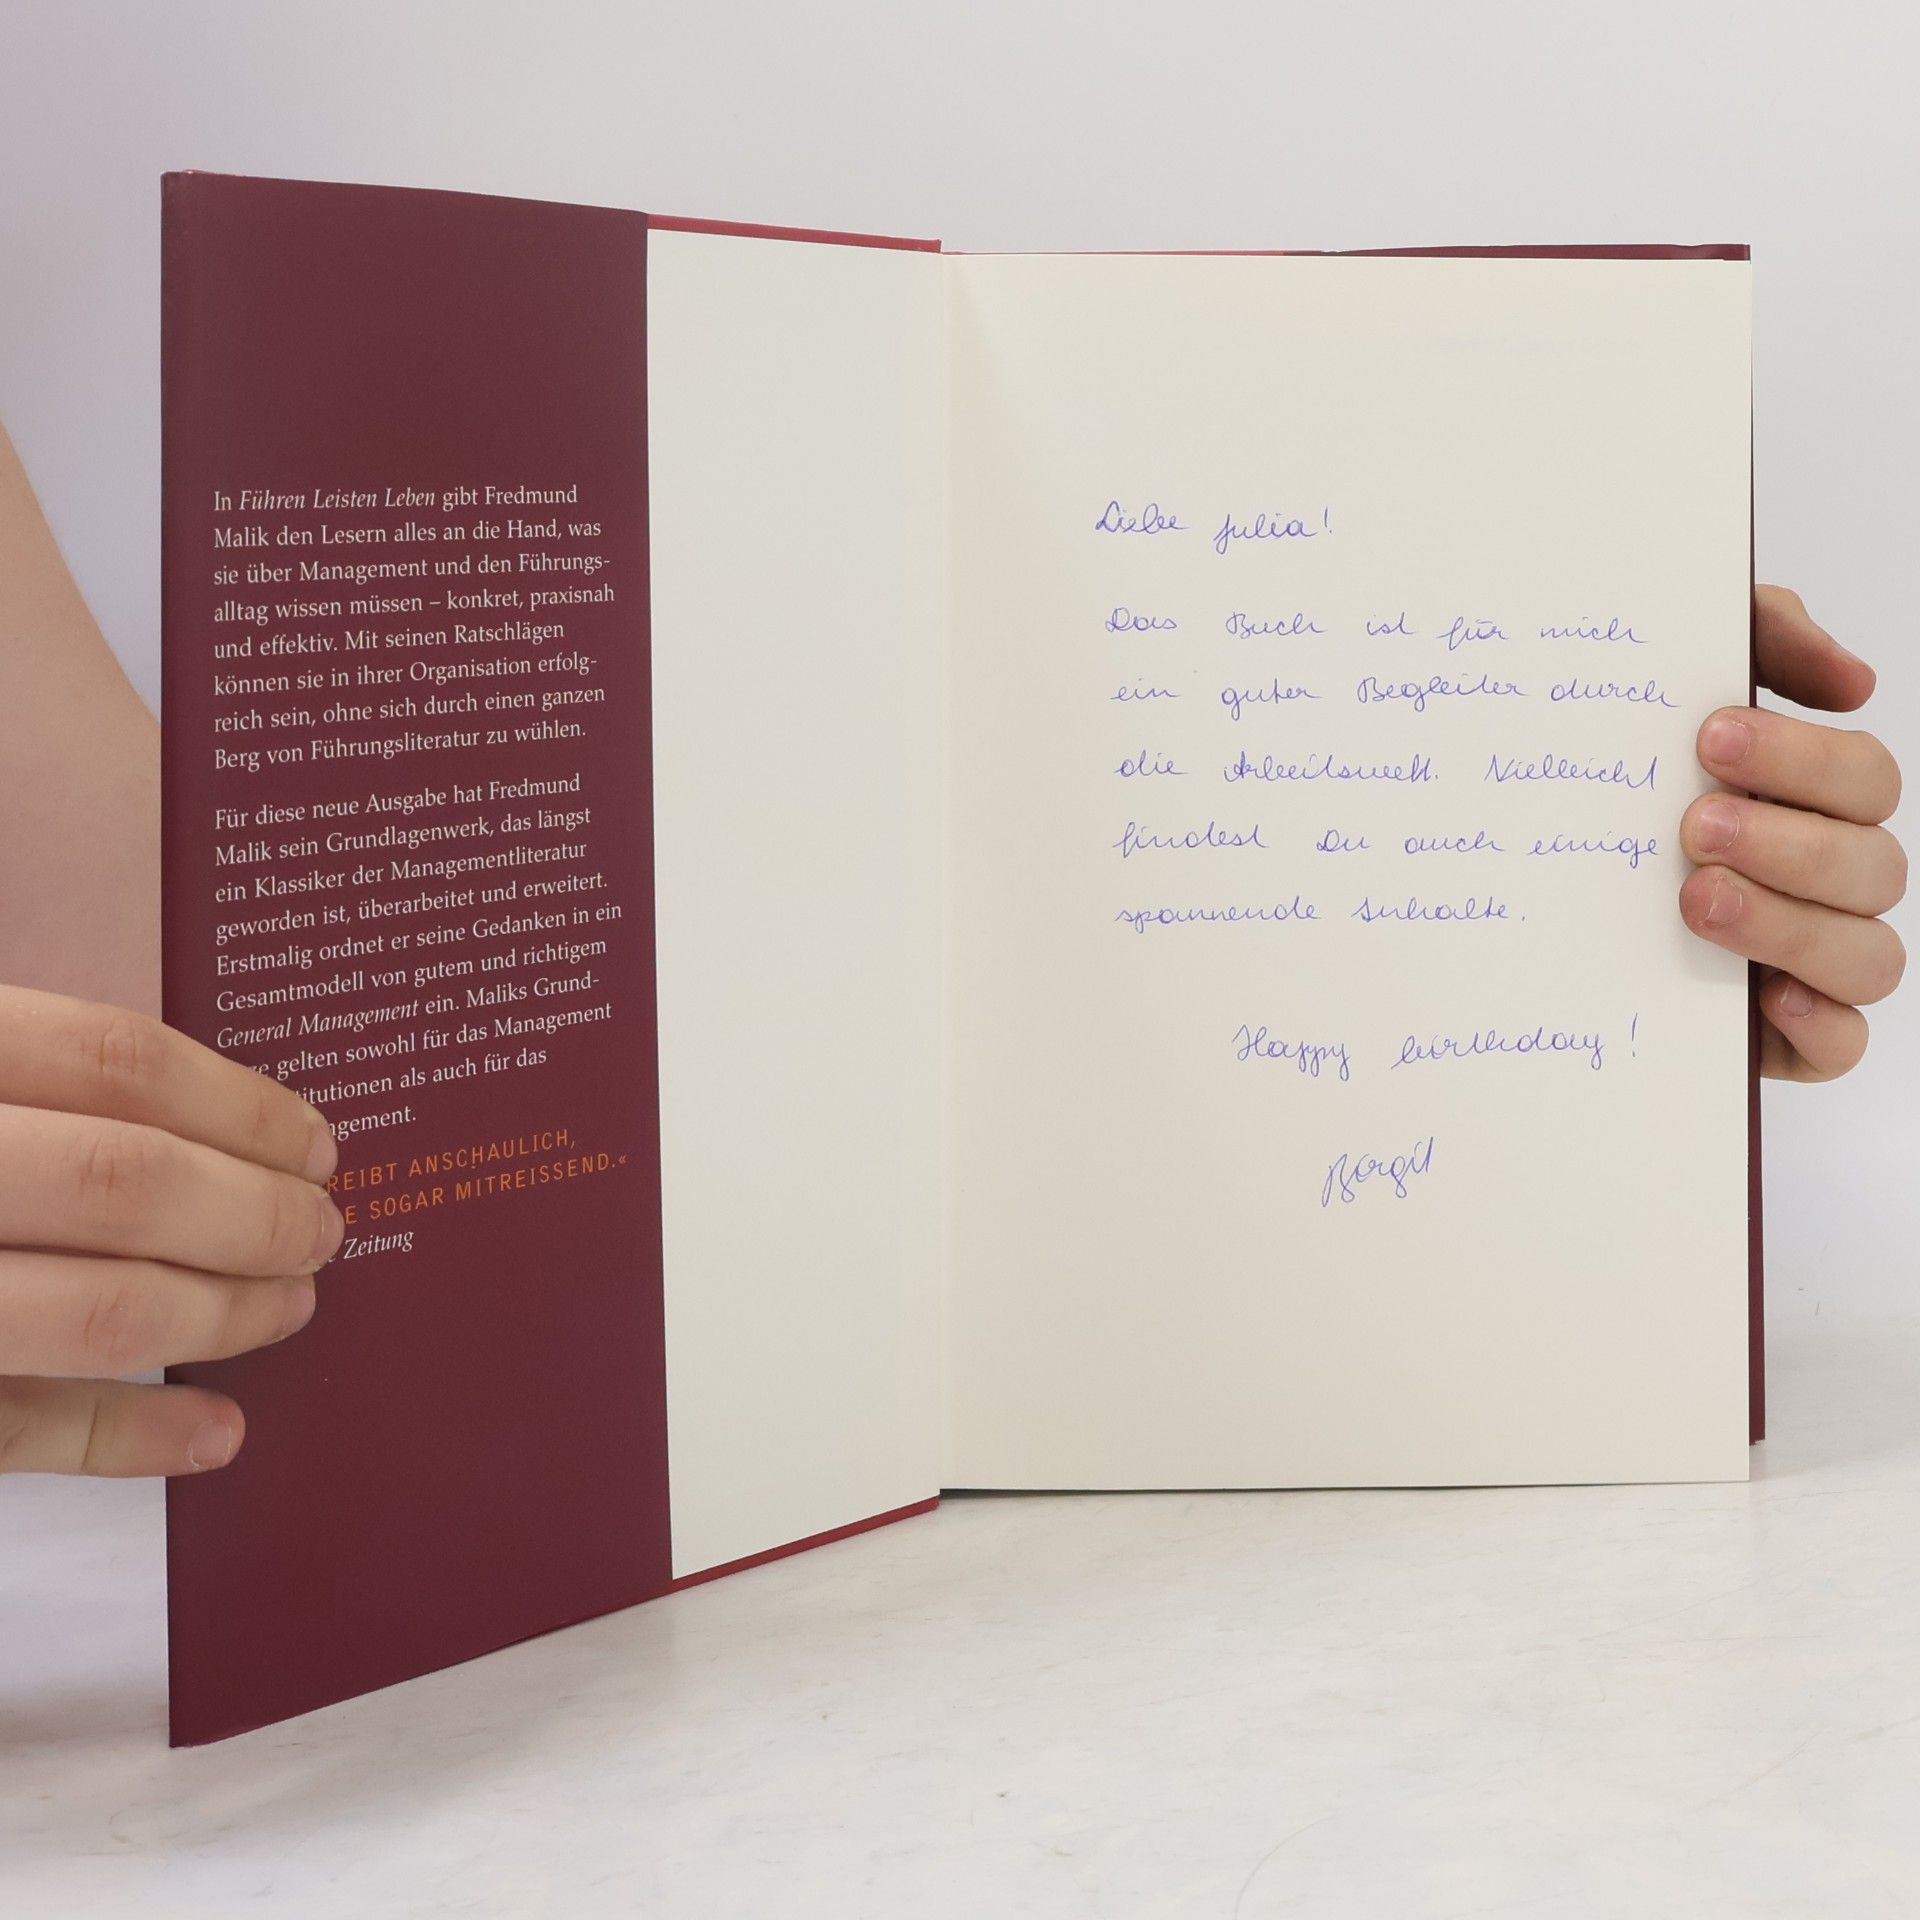 In Führen Leisten Leben gibt Fredmund
Malik den Lesern alles an die Hand, was
sie über Management und den Führungs-
alltag wissen müssen – konkret, praxisnah
und effektiv. Mit seinen Ratschlägen
können sie in ihrer Organisation erfolg-
reich sein, ohne sich durch einen ganzen
Berg von Führungsliteratur zu wühlen.
Für diese neue Ausgabe hat Fredmund
Malik sein Grundlagenwerk, das längst
ein Klassiker der Managementliteratur
geworden ist, überarbeitet und erweitert.
Erstmalig ordnet er seine Gedanken in ein
Gesamtmodell von gutem und richtigem
General Management ein. Maliks Grund-
gelten sowohl für das Management
als auch für das
ANSCHAULICH,
SOGAR MITREISSEND.«
Zeitung
Liebe Julia!
Das Buch ist für mich
ein guter Begleiter durch
die Arbeitswelt. Vielleicht
findest Du auch einige
spannende Inhalte.
Happy birthday!
Birgit